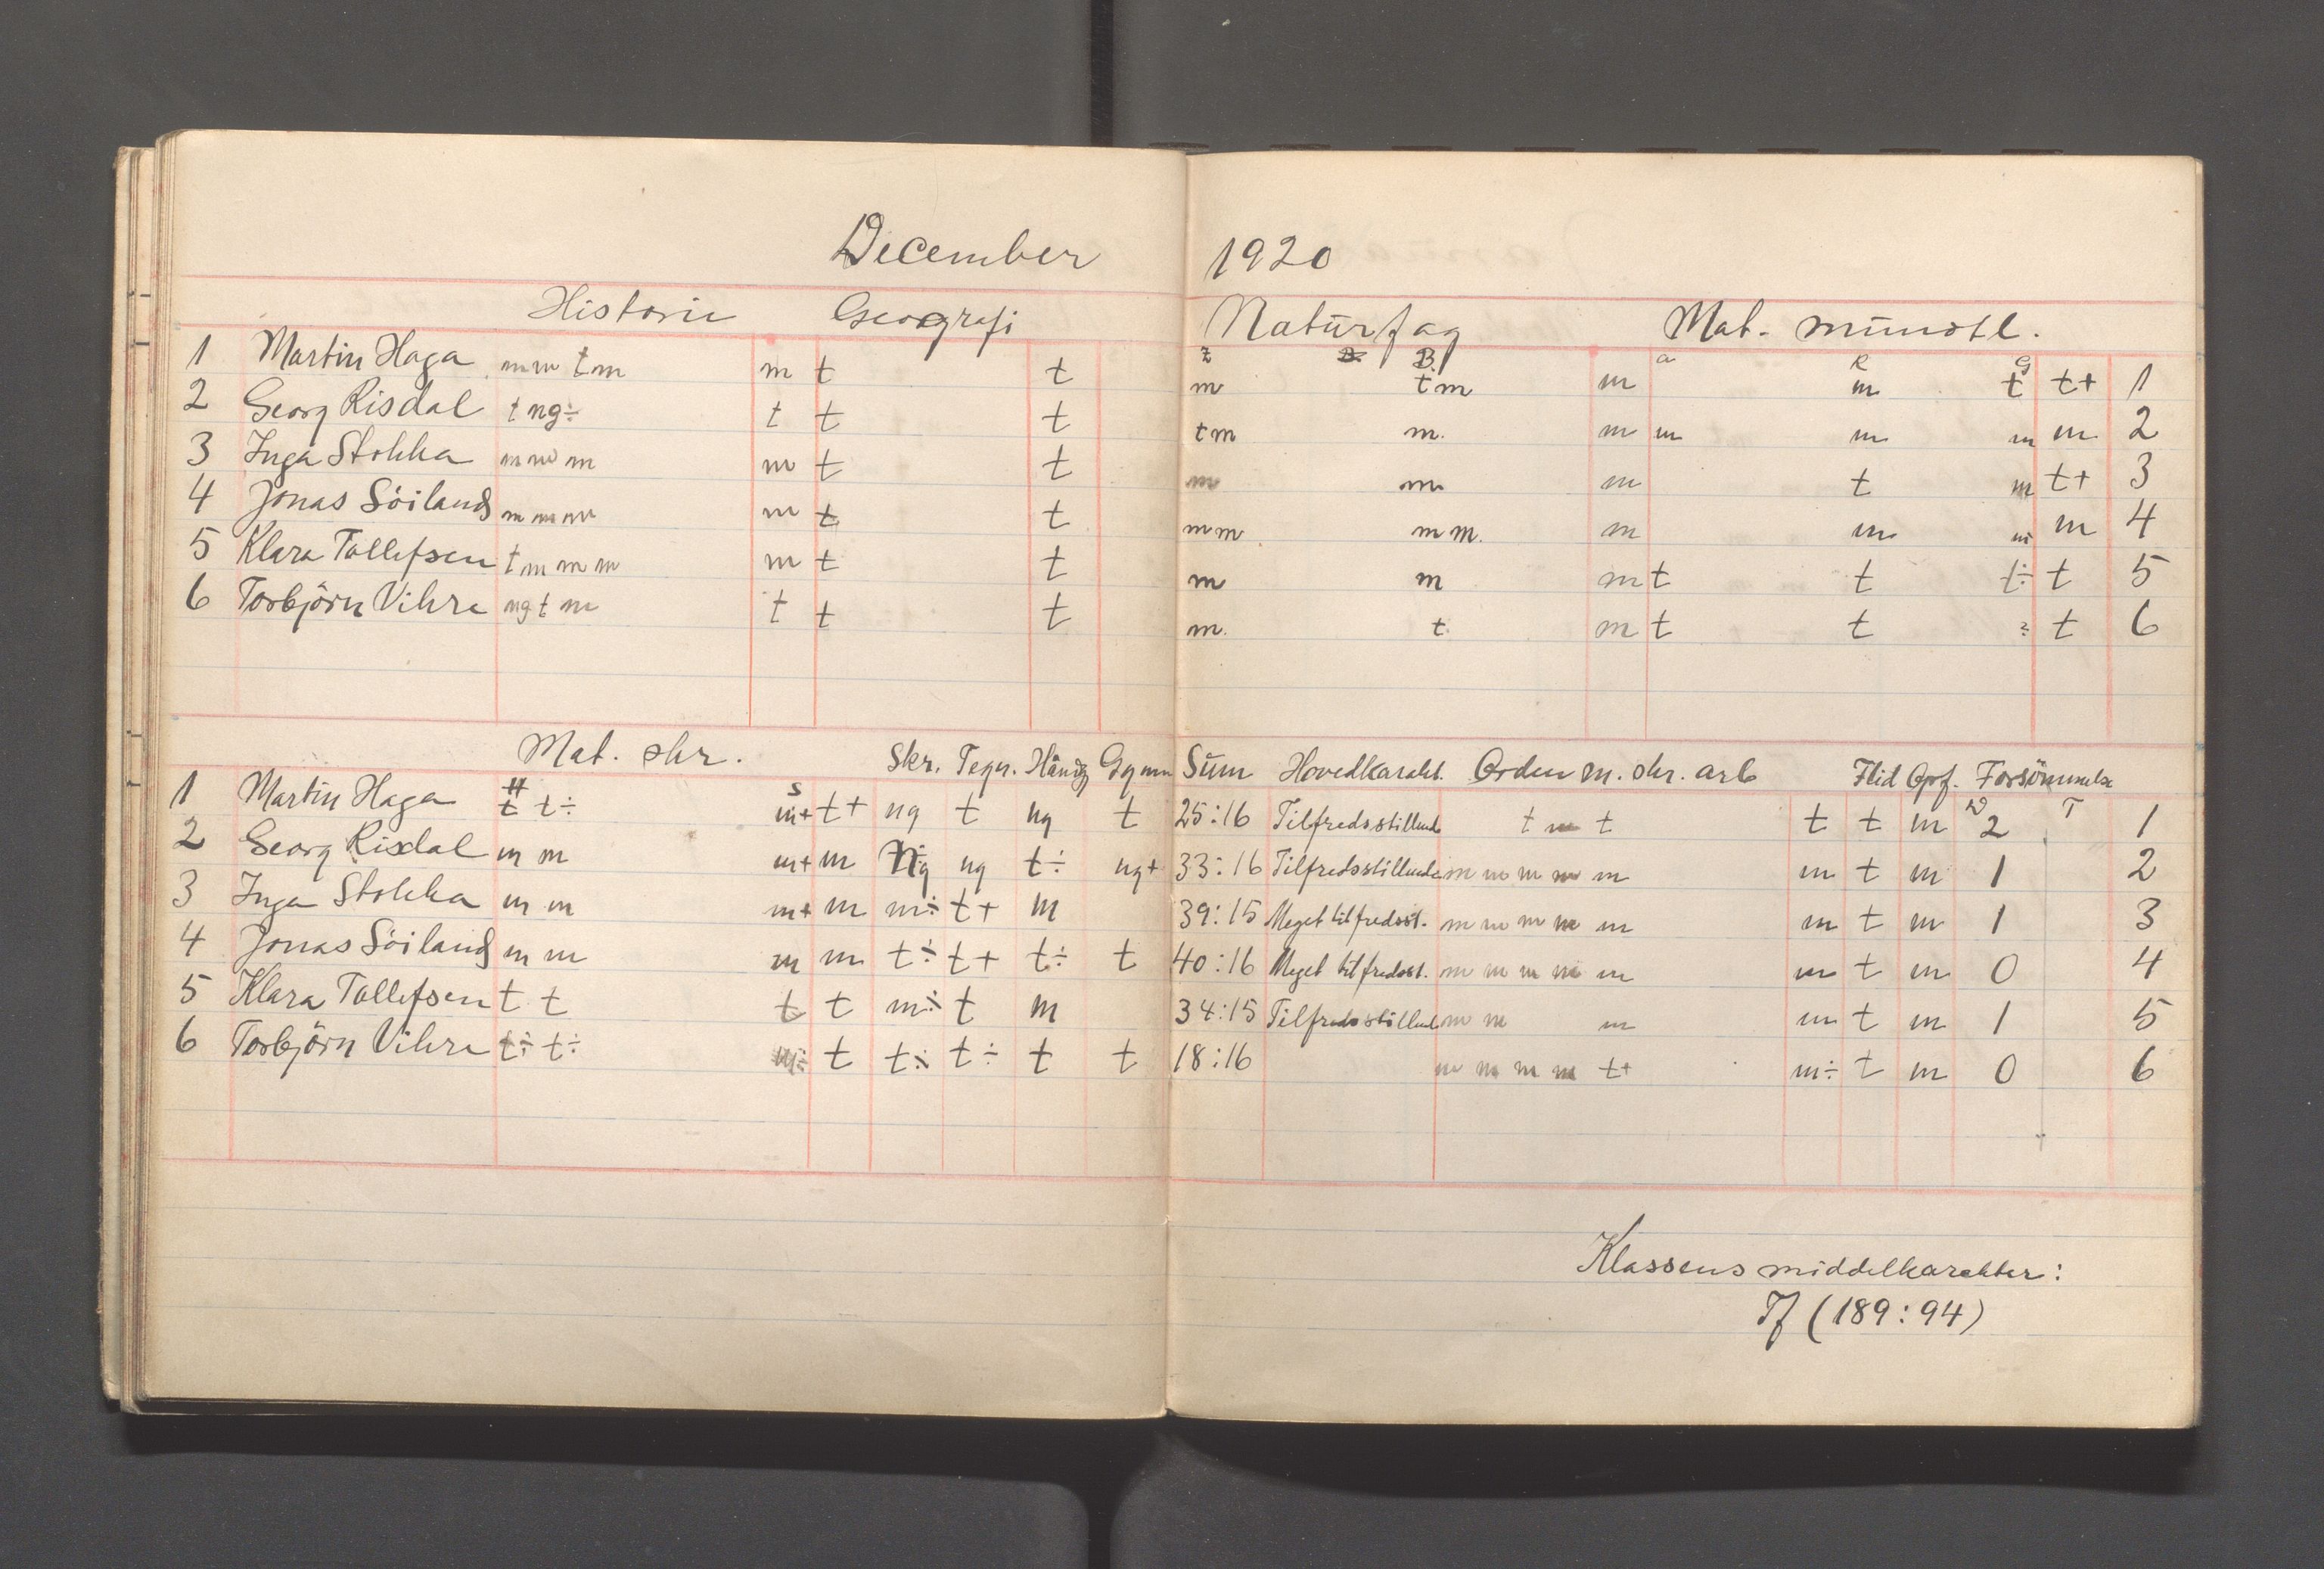 December 1920
Historie Geografi Naturfag Mat. mündtl.
z B. a R G
1 Martin Haga m m t m m t t m t m m m t t+ 1
2 Georg Risdal t ng÷ t t t t m m. m m m m m 2
3 Inga Stokka m m m m t t m m m t m t+ 3
4 Jonas Söiland m m m m t t m m m m. m m m m 4
5 Klara Tollefsen t m m m m t t m m m t t t÷ t 5
6 Torbjörn Vikre ng t m t t t m. t. m t t t 6
Mat. skr. Skr. Tegn. Håndg Gymn Süm Hovedkarakt. Orden m. skr. arb Flid Opf. Forsömmelse
H S D T
1 Martin Haga t t÷ m+ t+ ng t ng t 25:16 Tilfredsstillende t m t t t m 2 1
2 Georg Risdal m m m+ m Ng ng t÷ ng+ 33:16 Tilfredsstillende m m m m m m t m 1 2
3 Inga Stokka m m m+ m m÷ t+ m 39:15 Meget tilfredsst. m m m m m m t m 1 3
4 Jonas Söiland m m m m t÷ t+ t÷ t 40:16 Meget tilfredsst. m m m m m m t m 0 4
5 Klara Tollefsen t t t t m÷ t m 34:15 Tilfredsstillende m m m m t m 1 5
6 Torbjörn Vikre t÷ t÷ m÷ t t÷ t÷ t t 18:16 m m m m t+ m÷ t m 0 6
Klassens middelkarakter:
Tf (189:94)